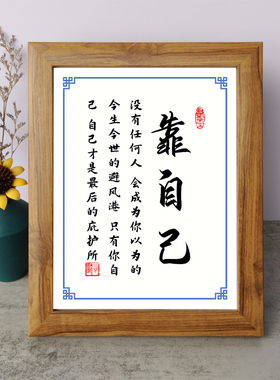 靠自己
没有任何人 会成为你以为的
今生今世的避风港 只有你自
己 自己才是最后的庇护所